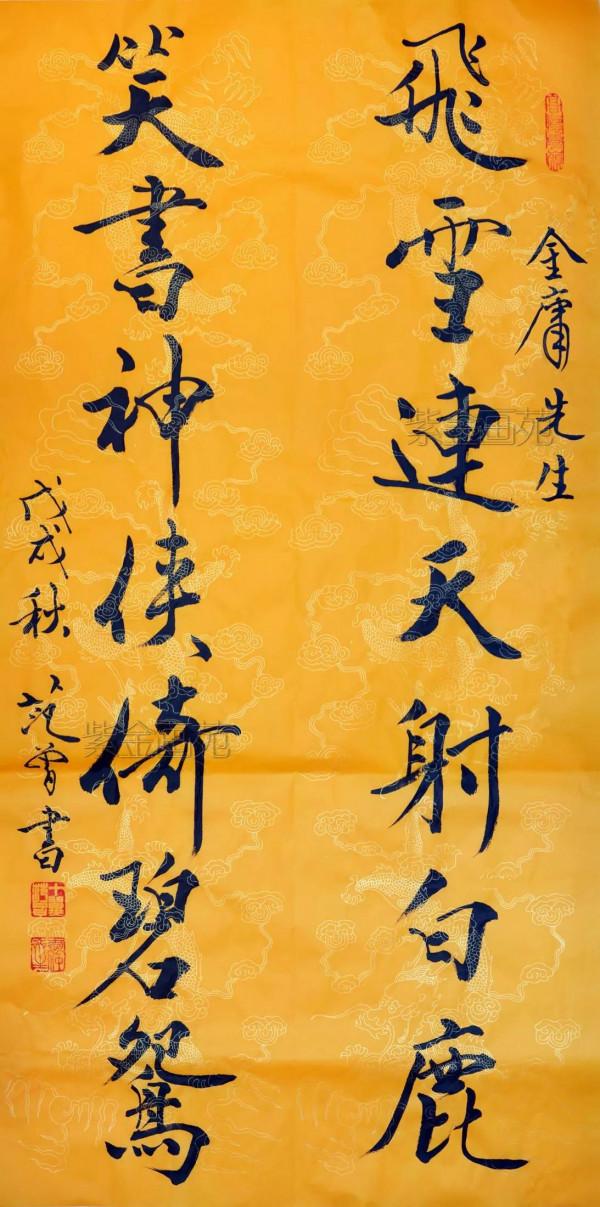 金庸先生
飛雪連天射白鹿
笑書神俠倚碧鴛
戊戌秋 范曾書
紫金画苑
紫金画苑